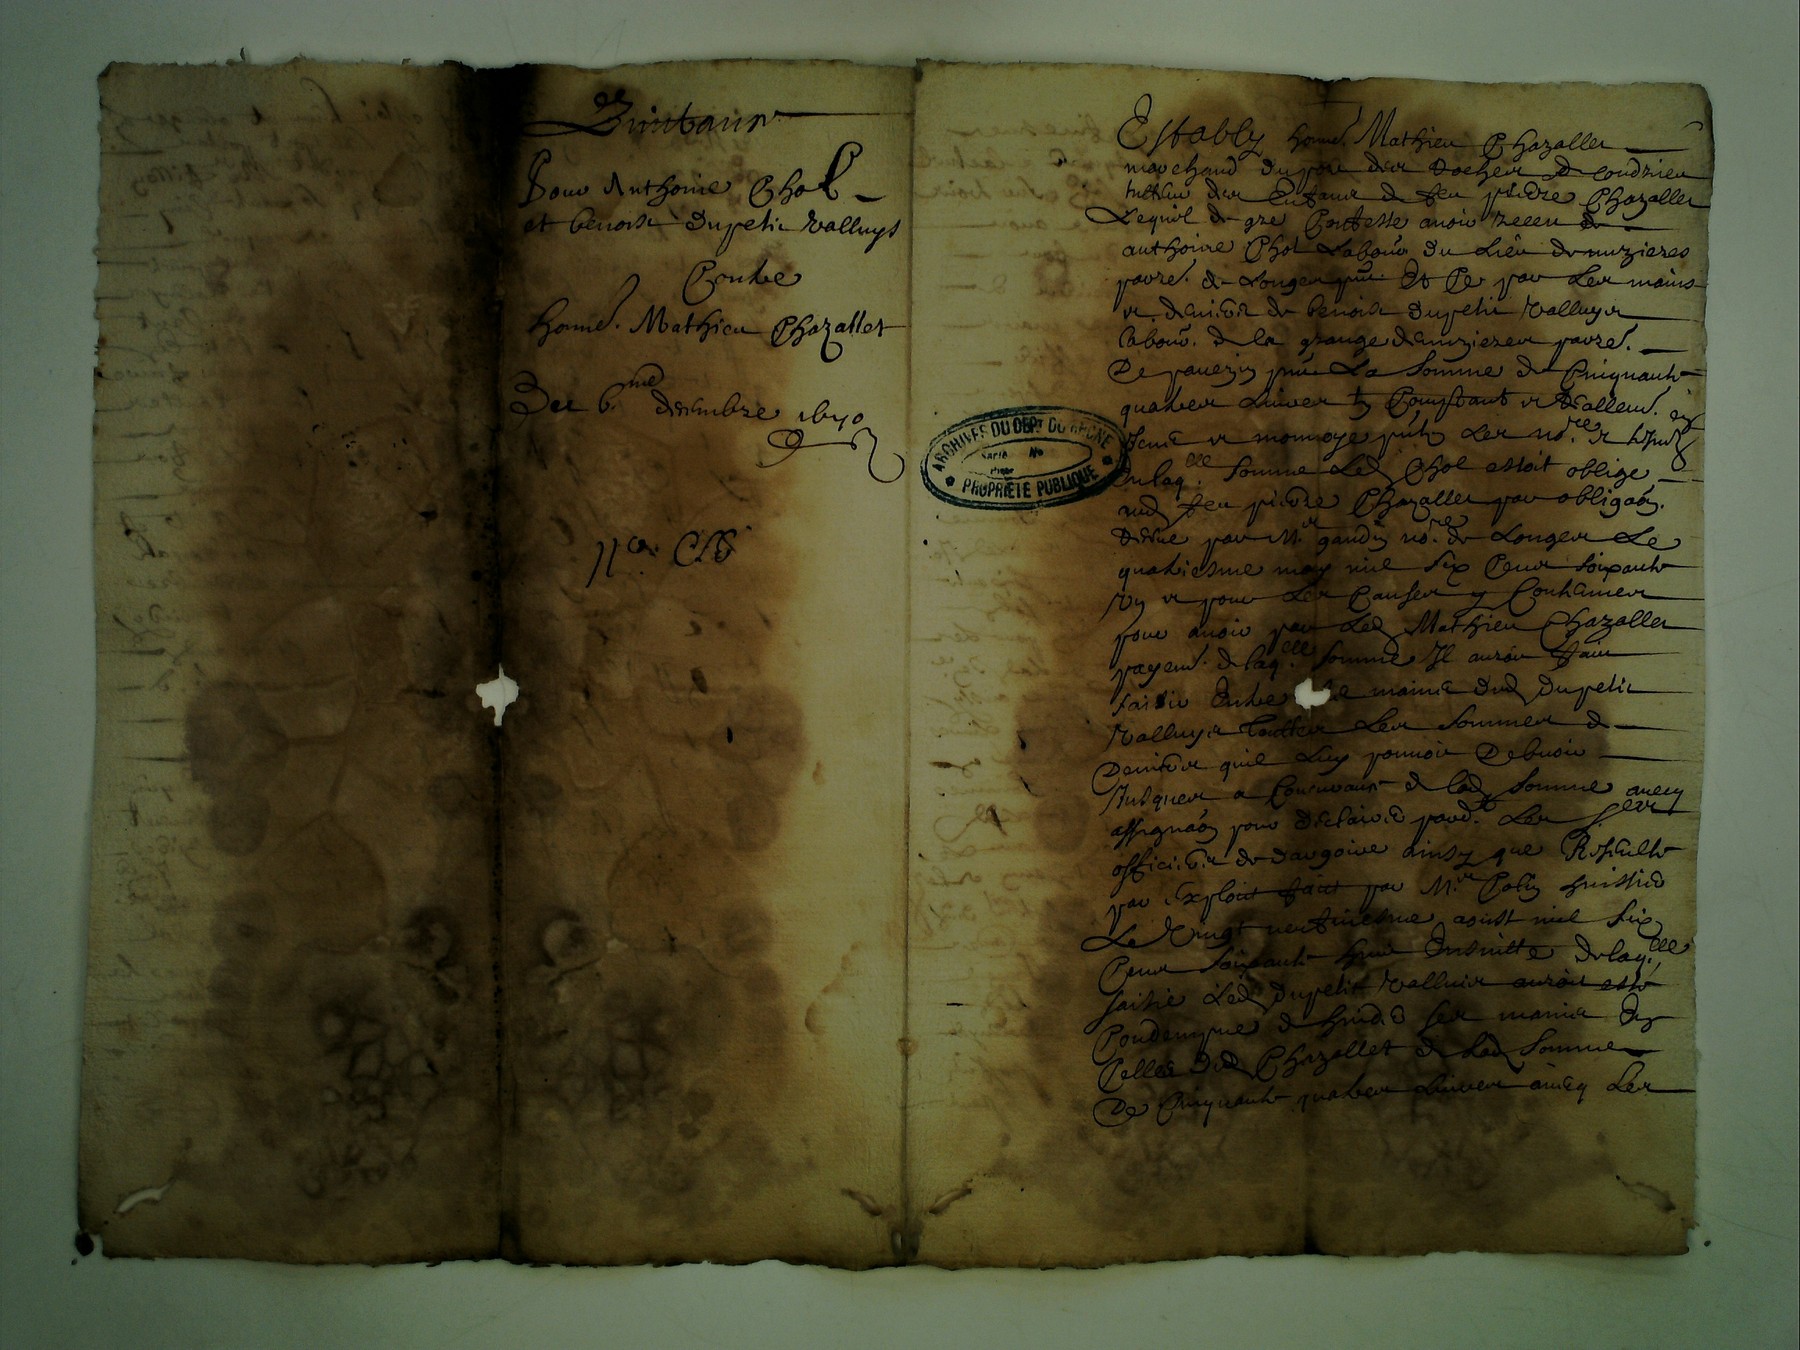 Quittance
Pour Anthoine Chol
et benoist dupetit valluys
Contre
honne. Mathieu Chazallet
Du 6.me decembre 1670
ARCHIVES DU DEPT DU RHONE
Serie No
Piece
PROPRIÉTÉ PUBLIQUE
Estably honne. Mathieu Chazallet
marchand du port des Roches de Condrieu
tutteur des Enfans de feu pierre Chazallet
Lequel de gre Confesse avoir receu de
anthoine Chol Labour. du Lieu de
parre. de Longes pnt. Et Ce par Les mains
et deniers de benoist dupetit valluys
labour. de la grange parre.
De pavezin pnt La Somme de Cinquante
quatre Livres Comptant et Reallemt. en
et monnoye pntz Les nore. et
En laq.elle Somme Led Chol estoit oblige
aud feu pierre Chazallet par obligaon.
Receue par Mr. gaudin nore. de Longes Le
quatriesme may mil Six Cens Soixante
Un et pour Les Causes y Contenues
pour avoir par Led Mathieu Chazallet
payemt. de laq.elle Somme Il auroit fait
saisir Entre Le mains dud dupetit
valluys touttes Les Sommes de
Deniers quil Luy pouvoit Debvoir
Jusques a Concurant de lad Somme avecq
assignaon pour declairer pard.t Les Srs
officiers de dargoire ainsy que Resulte
par Exploit fait par Mr. Colin huissier
Le Vingt neufviesme aoust mil Six
Cens Soixante huit Ensuitte de laq.elle
saisie Led dupetit valluis auroit esté
Condempne de ses mains En
Celles dud Chazallet de Lad Somme
De Cinquante quatre Livres avecq Les